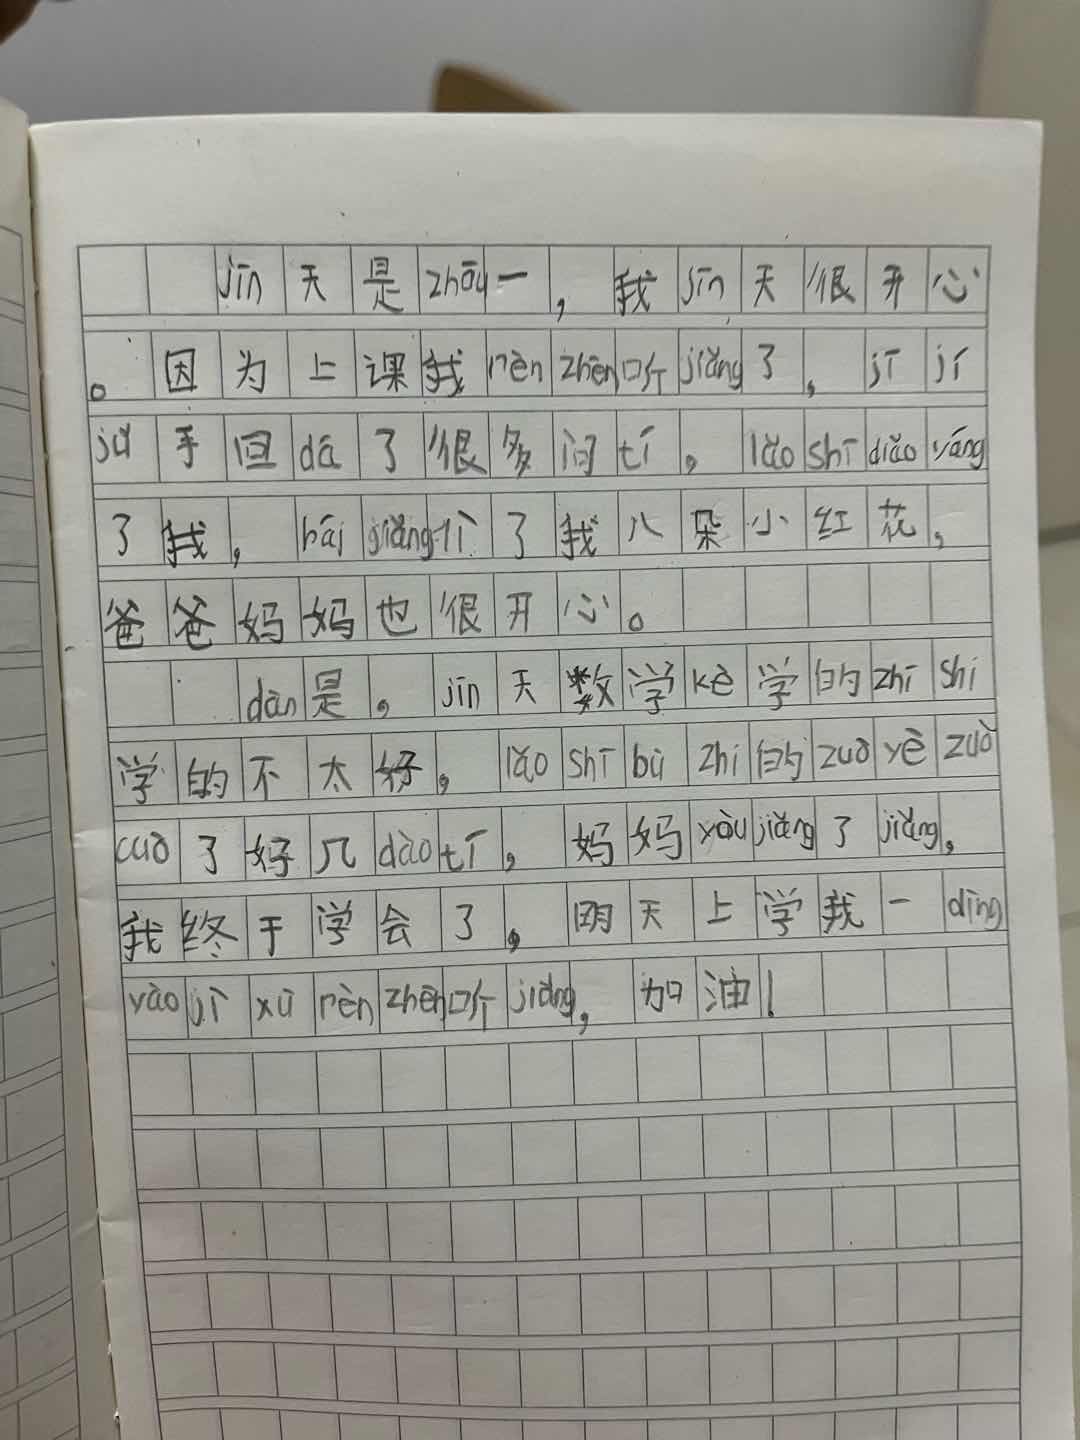 jīn天是zhōu一，我jīn天很开心
。因为上课我rèn zhēn听jiǎng了，jī jí
jǔ手回dá了很多问tí。lǎo shī biǎo yáng
了我，hái jiǎng们了我八朵小红花，
爸爸妈妈也很开心。
dàn是。jīn天数学kè学的zhī shi
学的不太好，lǎo shī bù zhì的zuò yè zuò
cuò了好几dào tí，妈妈yòu jiǎng了jiǎng，
我终于学会了。明天上学我一dìng
yào jì xù rèn zhēn听jiǎng，加油！